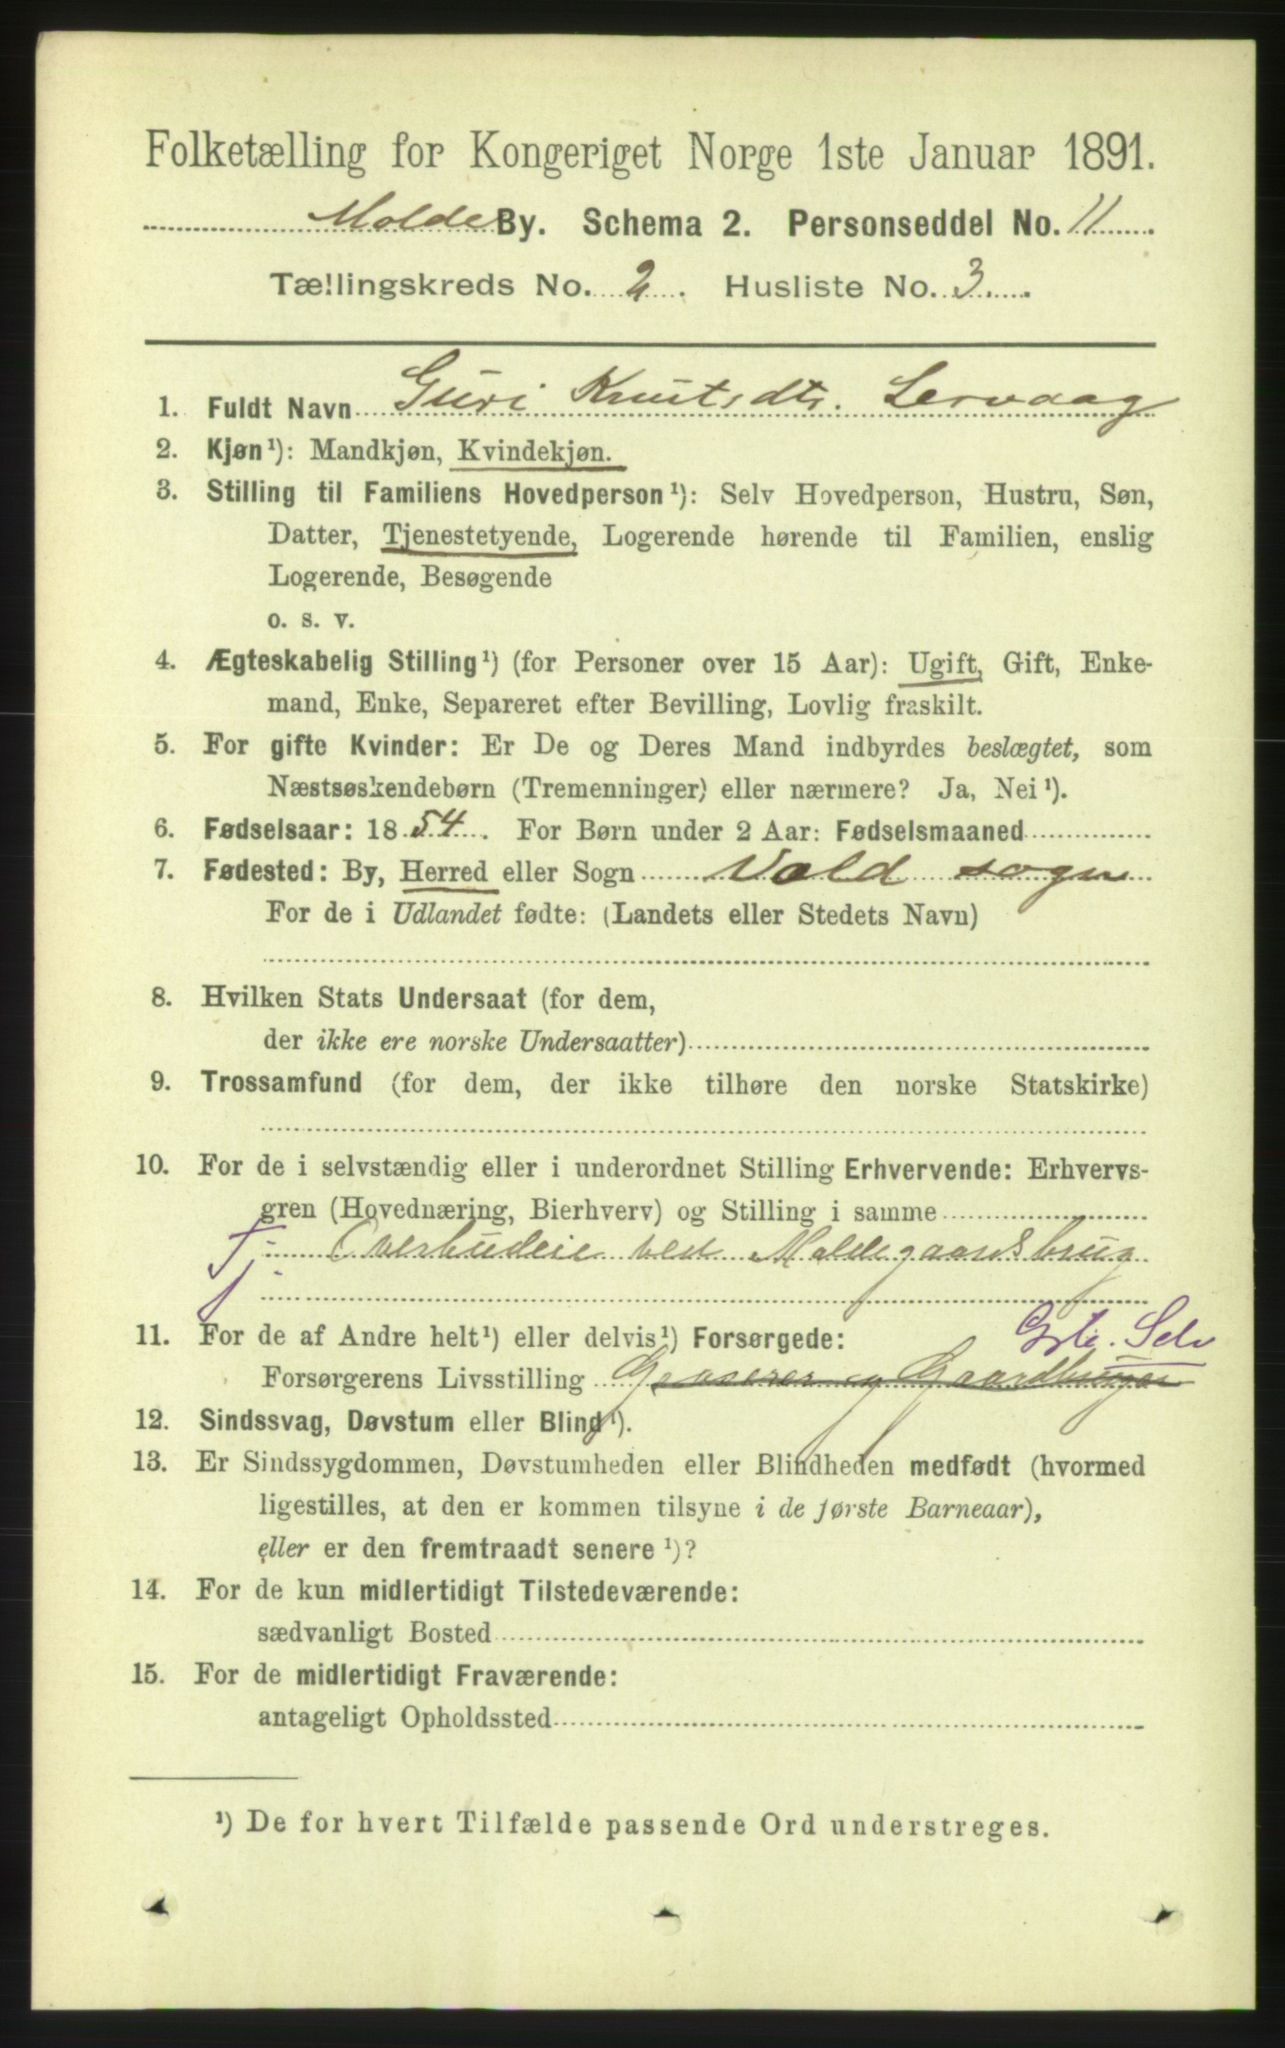 Folketælling for Kongeriget Norge 1ste Januar 1891.
Molde By. Schema 2. Personseddel No. 11
Tællingskreds No. 2. Husliste No. 3.
1. Fuldt Navn Guri Knutsdtr. Lervaag
2. Kjøn¹): Mandkjøn, Kvindekjøn.
3. Stilling til Familiens Hovedperson¹): Selv Hovedperson, Hustru, Søn,
Datter, Tjenestetyende, Logerende hørende til Familien, enslig
Logerende, Besøgende
o. s. v.
4. Ægteskabelig Stilling¹) (for Personer over 15 Aar): Ugift, Gift, Enke-
mand, Enke, Separeret efter Bevilling, Lovlig fraskilt.
5. For gifte Kvinder: Er De og Deres Mand indbyrdes beslægtet, som
Næstsøskendebørn (Tremenninger) eller nærmere? Ja, Nei¹).
6. Fødselsaar: 1854. For Børn under 2 Aar: Fødselsmaaned
7. Fødested: By, Herred eller Sogn Vold sogn
For de i Udlandet fødte: (Landets eller Stedets Navn)
8. Hvilken Stats Undersaat (for dem,
der ikke ere norske Undersaatter)
9. Trossamfund (for dem, der ikke tilhøre den norske Statskirke)
10. For de i selvstændig eller i underordnet Stilling Erhvervende: Erhvervs-
gren (Hovednæring, Bierhverv) og Stilling i samme
Tj: Overbudeie ved Moldegaards brug
11. For de af Andre helt¹) eller delvis¹) Forsørgede: Selv
Forsørgerens Livsstilling Grosserer og Gaardbruger
12. Sindssvag, Døvstum eller Blind¹).
13. Er Sindssygdommen, Døvstumheden eller Blindheden medfødt (hvormed
ligestilles, at den er kommen tilsyne i de første Barneaar),
eller er den fremtraadt senere¹)?
14. For de kun midlertidigt Tilstedeværende:
sædvanligt Bosted
15. For de midlertidigt Fraværende:
antageligt Opholdssted
¹) De for hvert Tilfælde passende Ord understreges.